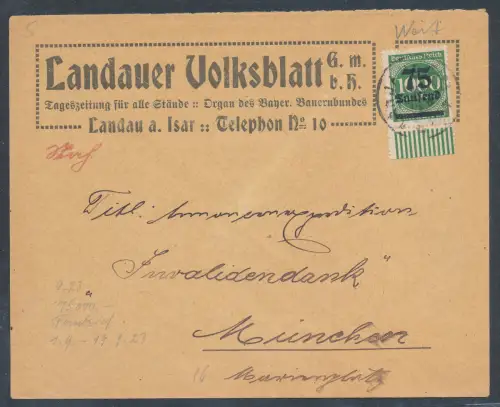 5
Weit
Landauer Volksblatt G. m. b. H.
Tageszeitung für alle Stände :: Organ des Bayer. Bauernbundes
Landau a. Isar :: Telephon No 10
Deutsches Reich
75
Tausend
Titl. Annoncenexpedition
"Invalidendank"
München
Marienplatz
16
1.9 – 19.9.23